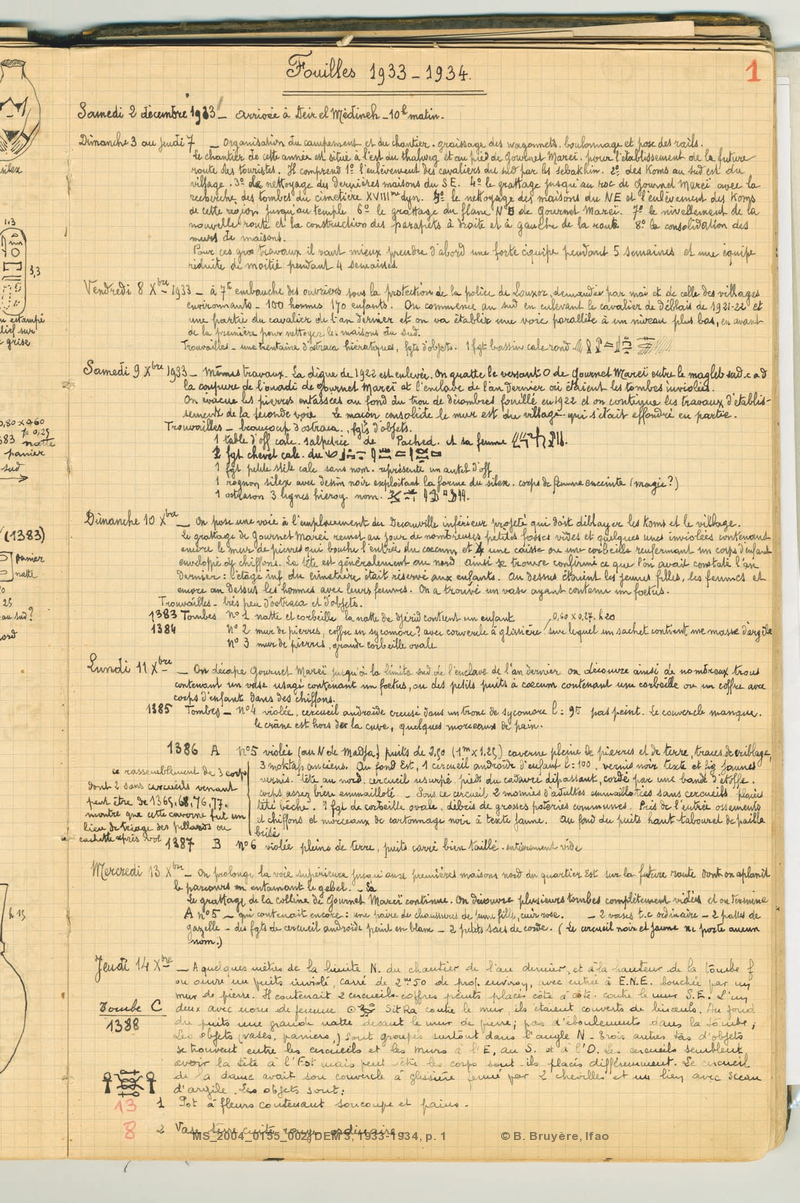 Fouilles 1933-1934.
1
Samedi 2 décembre 1933 _ arrivée à Deir el Médineh _ 10h matin.
Dimanche 3 au Jeudi 7 _ Organisation du campement et du chantier. graissage des wagonnets. boulonnage et pose des rails.
Le chantier de cette année est situé à l'est du thalweg et au pied de Gournet Mareï. pour l'établissement de la future
route des touristes. Il comprend 1º l'enlèvement des cavaliers du sud par les sebakhin. 2º des Koms au sud est du
village. 3º le nettoyage des dernières maisons du S.E. 4º le grattage jusqu'au roc de Gournet Mareï avec la
recherche des tombes du cimetière XVIIIme dyn. 5º le nettoyage des maisons du N.E et l'enlèvement des Koms
de cette région jusqu'au temple 6º le grattage du flanc N de Gournet Mareï. 7º le nivellement de la
nouvelle route et la construction des parapets à droite et à gauche de la route 8º la consolidation des
murs de maisons.
Pour ces gros travaux il vaut mieux prendre d'abord une forte équipe pendant 5 semaines et une équipe
réduite de moitié pendant 4 semaines.
Vendredi 8 Xbre 1933 _ à 7h embauche des ouvriers sous la protection de la police de Louxor, demandée par moi et de celle des villages
environnants _ 100 hommes 170 enfants. On commence au sud en enlevant le cavalier de déblais de 1921-22 et
une partie du cavalier de l'an dernier et on va établir une voie parallèle à un niveau plus bas, en avant
de la première pour nettoyer les maisons du Sud.
Trouvailles _ une trentaine d'ostraca hiératiques, fgts d'objets. 1 fgt bassin calc. rond
Samedi 9 Xbre 1933 _ Mêmes travaux. La digue de 1922 est enlevée. On gratte le versant O de Gournet Mareï entre le magleb sud c.a.d
la coupure de l'ouadi de Gournet Mareï et l'enclave de l'an dernier où étaient les tombes inviolées.
On évacue les pierres entassées au fond du trou de décombres fouillé en 1922 et on continue les travaux d'établis-
sement de la seconde voie. le maçon consolide le mur est du village qui s'était effondré en partie.
Trouvailles _ beaucoup d'ostraca, fgts d'objets.
1 table d'off. calc. salpêtrée de Pached. et sa femme
1 fgt chevet calc. du
1 fgt petite stèle calc sans nom. représente un autel d'off
1 rognon silex avec dessin noir exploitant la forme du silex. corps de femme enceinte (magie?)
1 ostracon 3 lignes hierog nom.
Dimanche 10 Xbre _ On pose une voie à l'emplacement du Decauville inférieur projeté qui doit déblayer les Koms et le village.
Le grattage de Gournet Mareï remet au jour de nombreuses petites fosses vides et quelques unes inviolées contenant
encore le mur de pierres qui bouche l'entrée du caecum et une caisse ou une corbeille renfermant un corps d'enfant
enveloppé de chiffons. La tête est généralement au nord ainsi se trouve confirmé ce que l'on avait constaté l'an
dernier: l'étage inf du cimetière était réservé aux enfants. Au dessus étaient les jeunes filles, les femmes et
encore au dessus les hommes avec leurs femmes. On a trouvé un vase ayant contenu un foetus.
Trouvailles _ très peu d'ostraca et d'objets.
1383 Tombes Nº 1 natte et corbeille la natte de djérid contient un enfant 0,60 x 0,27. h 20
1384 Nº 2 mur de pierres, coffre en sycomore? avec couvercle à glissière sur lequel un sachet contient une masse d'argile
Nº 3 mur de pierres, grande corbeille ovale
Lundi 11 Xbre _ On décape Gournet Mareï jusqu'à la limite sud de l'enclave de l'an dernier on découvre ainsi de nombreux trous
contenant un vase usagé contenant un foetus, ou des petits puits à caecum contenant une corbeille ou un coffre avec
corps d'enfant dans des chiffons.
1385 Tombes _ Nº 4 violée, cercueil androïde creusé dans un tronc de sycomore l: 95 pas peint. Le couvercle manque.
le crâne est hors de la cuve, quelques morceaux de pain.
1386 A Nº 5 violée (au N de Madja) puits de 2,50 (1m x 1,25) caverne pleine de pierres et de terre, traces de criblage,
3 moktafs anciens. Au fond Est, 1 cercueil androïde d'enfant l: 100. vernis noir texte et fig jaunes
vernis. tête au nord. cercueil usurpé pieds du cadavre dépassant, cordé par une bande d'étoffe.
corps assez bien emmailloté _ Sous ce cercueil 2 momies d'adultes emmaillotées sans cercueils pliées
tête bêche. 1 fgt de corbeille ovale. débris de grosses poteries communes. Près de l'entrée ossements
et chiffons et morceaux de cartonnage noir à texte jaune. Au fond du puits haut tabouret de paille
brûlé
ce rassemblement de 3 corps
dont 2 sans cercueils venant
peut être de 1365, 68, 76, 77.
montre que cette caverne fut un
lieu de triage des pillards ou
cachette après vol
1387 B Nº 6 violée pleine de terre, puits carré bien taillé. entièrement vide
Mercredi 13 Xbre _ On prolonge la voie supérieure jusqu'aux premières maisons nord du quartier Est sur la future route dont on aplanit
le parcours en entamant le gebel.
Le grattage de la colline de Gournet Mareï continue. On découvre plusieurs tombes complètement vides et on termine
A nº 5 _ qui contenait encore: une paire de chaussures de jeune fille, cuir rose. _ 2 vases t.c ordinaire _ 2 pattes de
gazelle _ des fgts de cercueil androïde peint en blanc _ 2 petits sacs de corde. (Le cercueil noir et jaune ne porte aucun
nom.)
Jeudi 14 Xbre _ A quelques mètres de la limite N. du chantier de l'an dernier, et à la hauteur de la tombe f
on ouvre un puits inviolé, carré de 2m50 de prof. environ, avec entrée à E.N.E. bouchée par un
mur de pierre. Il contenait 2 cercueils-coffres peints placés côte à côte contre le mur S.E. L'un
deux avec nom de femme SitRa contre le mur, ils étaient couverts de linceuls. Au fond
du puits une grande natte devant le mur de pierre; pas d'éboulements dans la tombe;
Les objets (vases, paniers,) sont groupés surtout dans l'angle N. Trois autres tas d'objets
se trouvent entre les cercueils et les murs à l'E, au S. et à l'O. Les cercueils semblent
avoir la tête à l'Est mais peut être les corps sont-ils placés différemment. Le cercueil
de la dame avait son couvercle à glissière fermé par 2 chevilles et un lien avec sceau
d'argile. Les objets sont:
Tombe C
1388
13 1 Pot à fleurs contenant soucoupe et pains.
8 2 Vase terre cuite rouge ordinaire
MS_2004_0155_002, DEM 3, 1933-1934, p. 1
© B. Bruyère, Ifao
silex
113
3,3
estampé
sur
grise
0,80 x 0,60
383 natte
panier
sud
(1383)
panier
natte
25
au sud?
nord
h 15